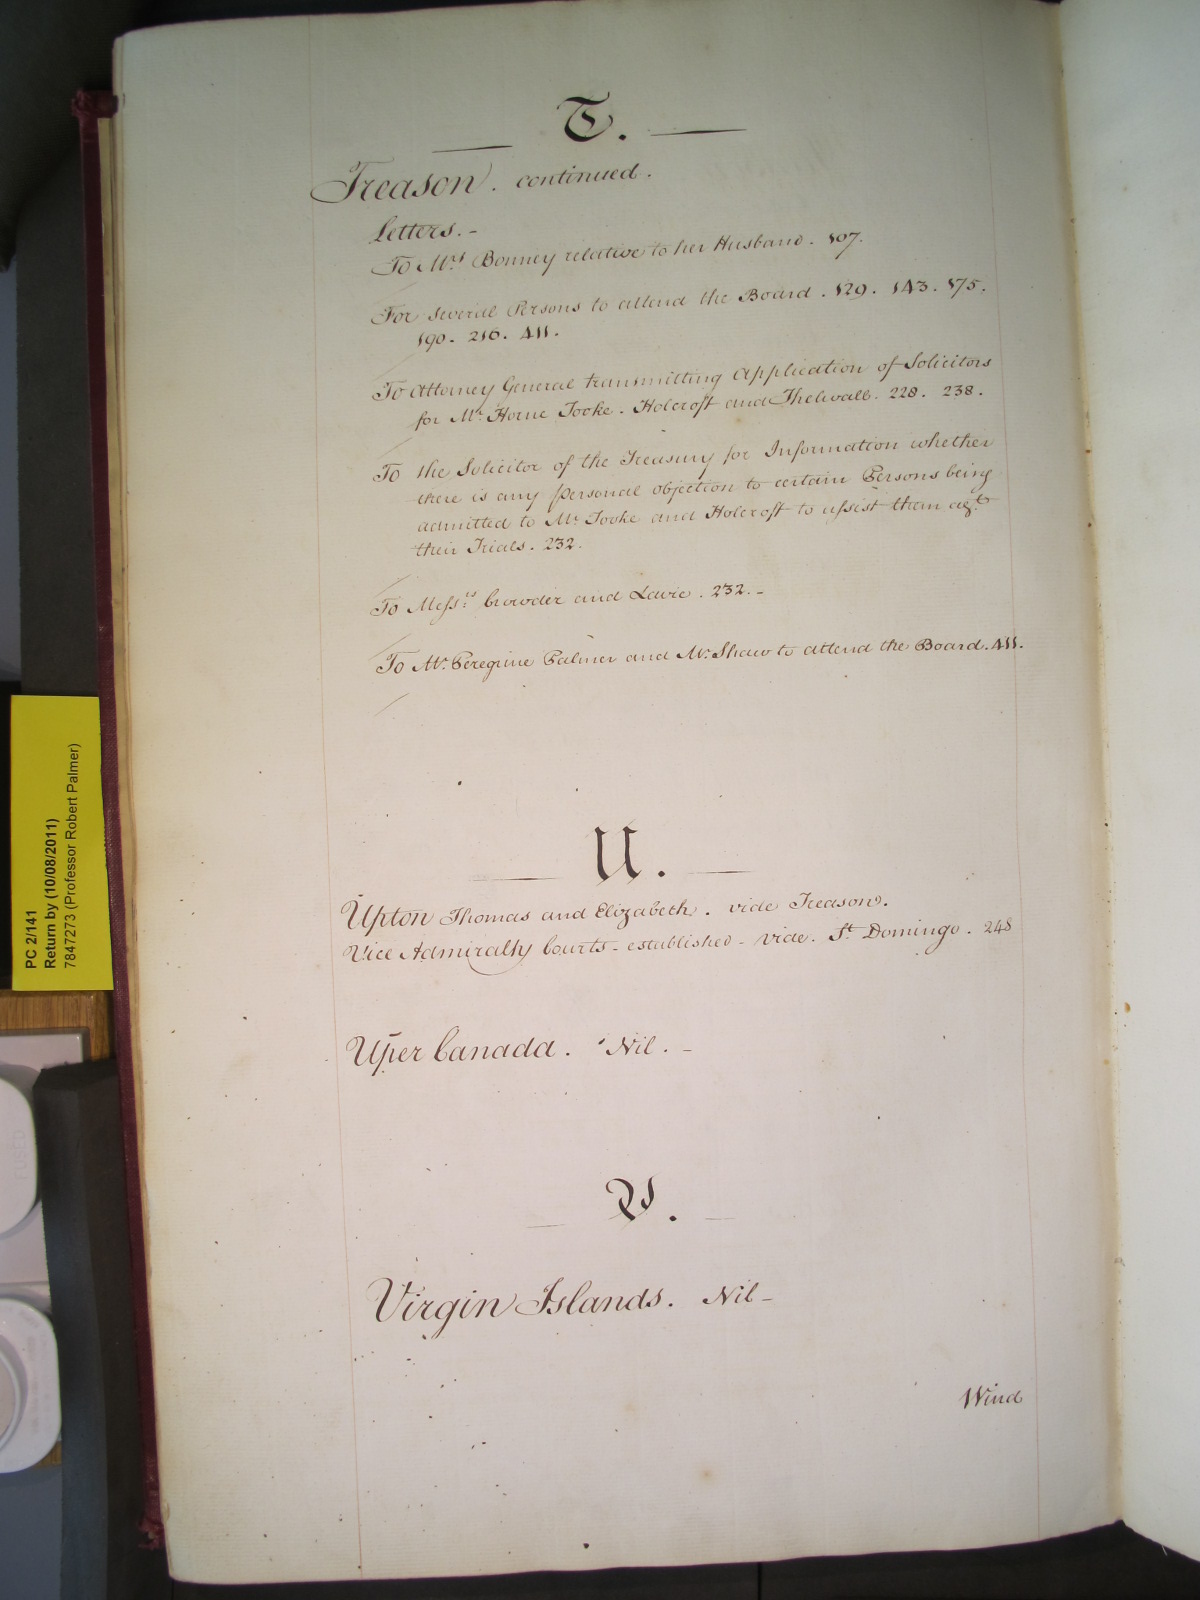 T.
Treason. continued.
Letters.-
To Mrs Bonney relative to her Husband. 107.
For several Persons to attend the Board. 129. 143. 175.
190. 216. 411.
To Attorney General transmitting Application of Solicitors
for Mr. Horne Tooke. Holcroft and Thelwall. 228. 238.
To the Solicitor of the Treasury for Information whether
there is any personal objection to certain Persons being
admitted to Mr. Tooke and Holcroft to assist them agt.
their Trials. 232.
To Messrs. Crowder and Lavie. 232.-
To Mr. Peregrine Palmer and Mr. Shaw to attend the Board. 411.
U.
Upton Thomas and Elizabeth. vide Treason.
Vice Admiralty Courts - established - vide. St. Domingo. 248
Uper Canada. Nil.-
V.
Virgin Islands. Nil-
Wind
PC 2/141
Return by (10/08/2011)
7847273 (Professor Robert Palmer)